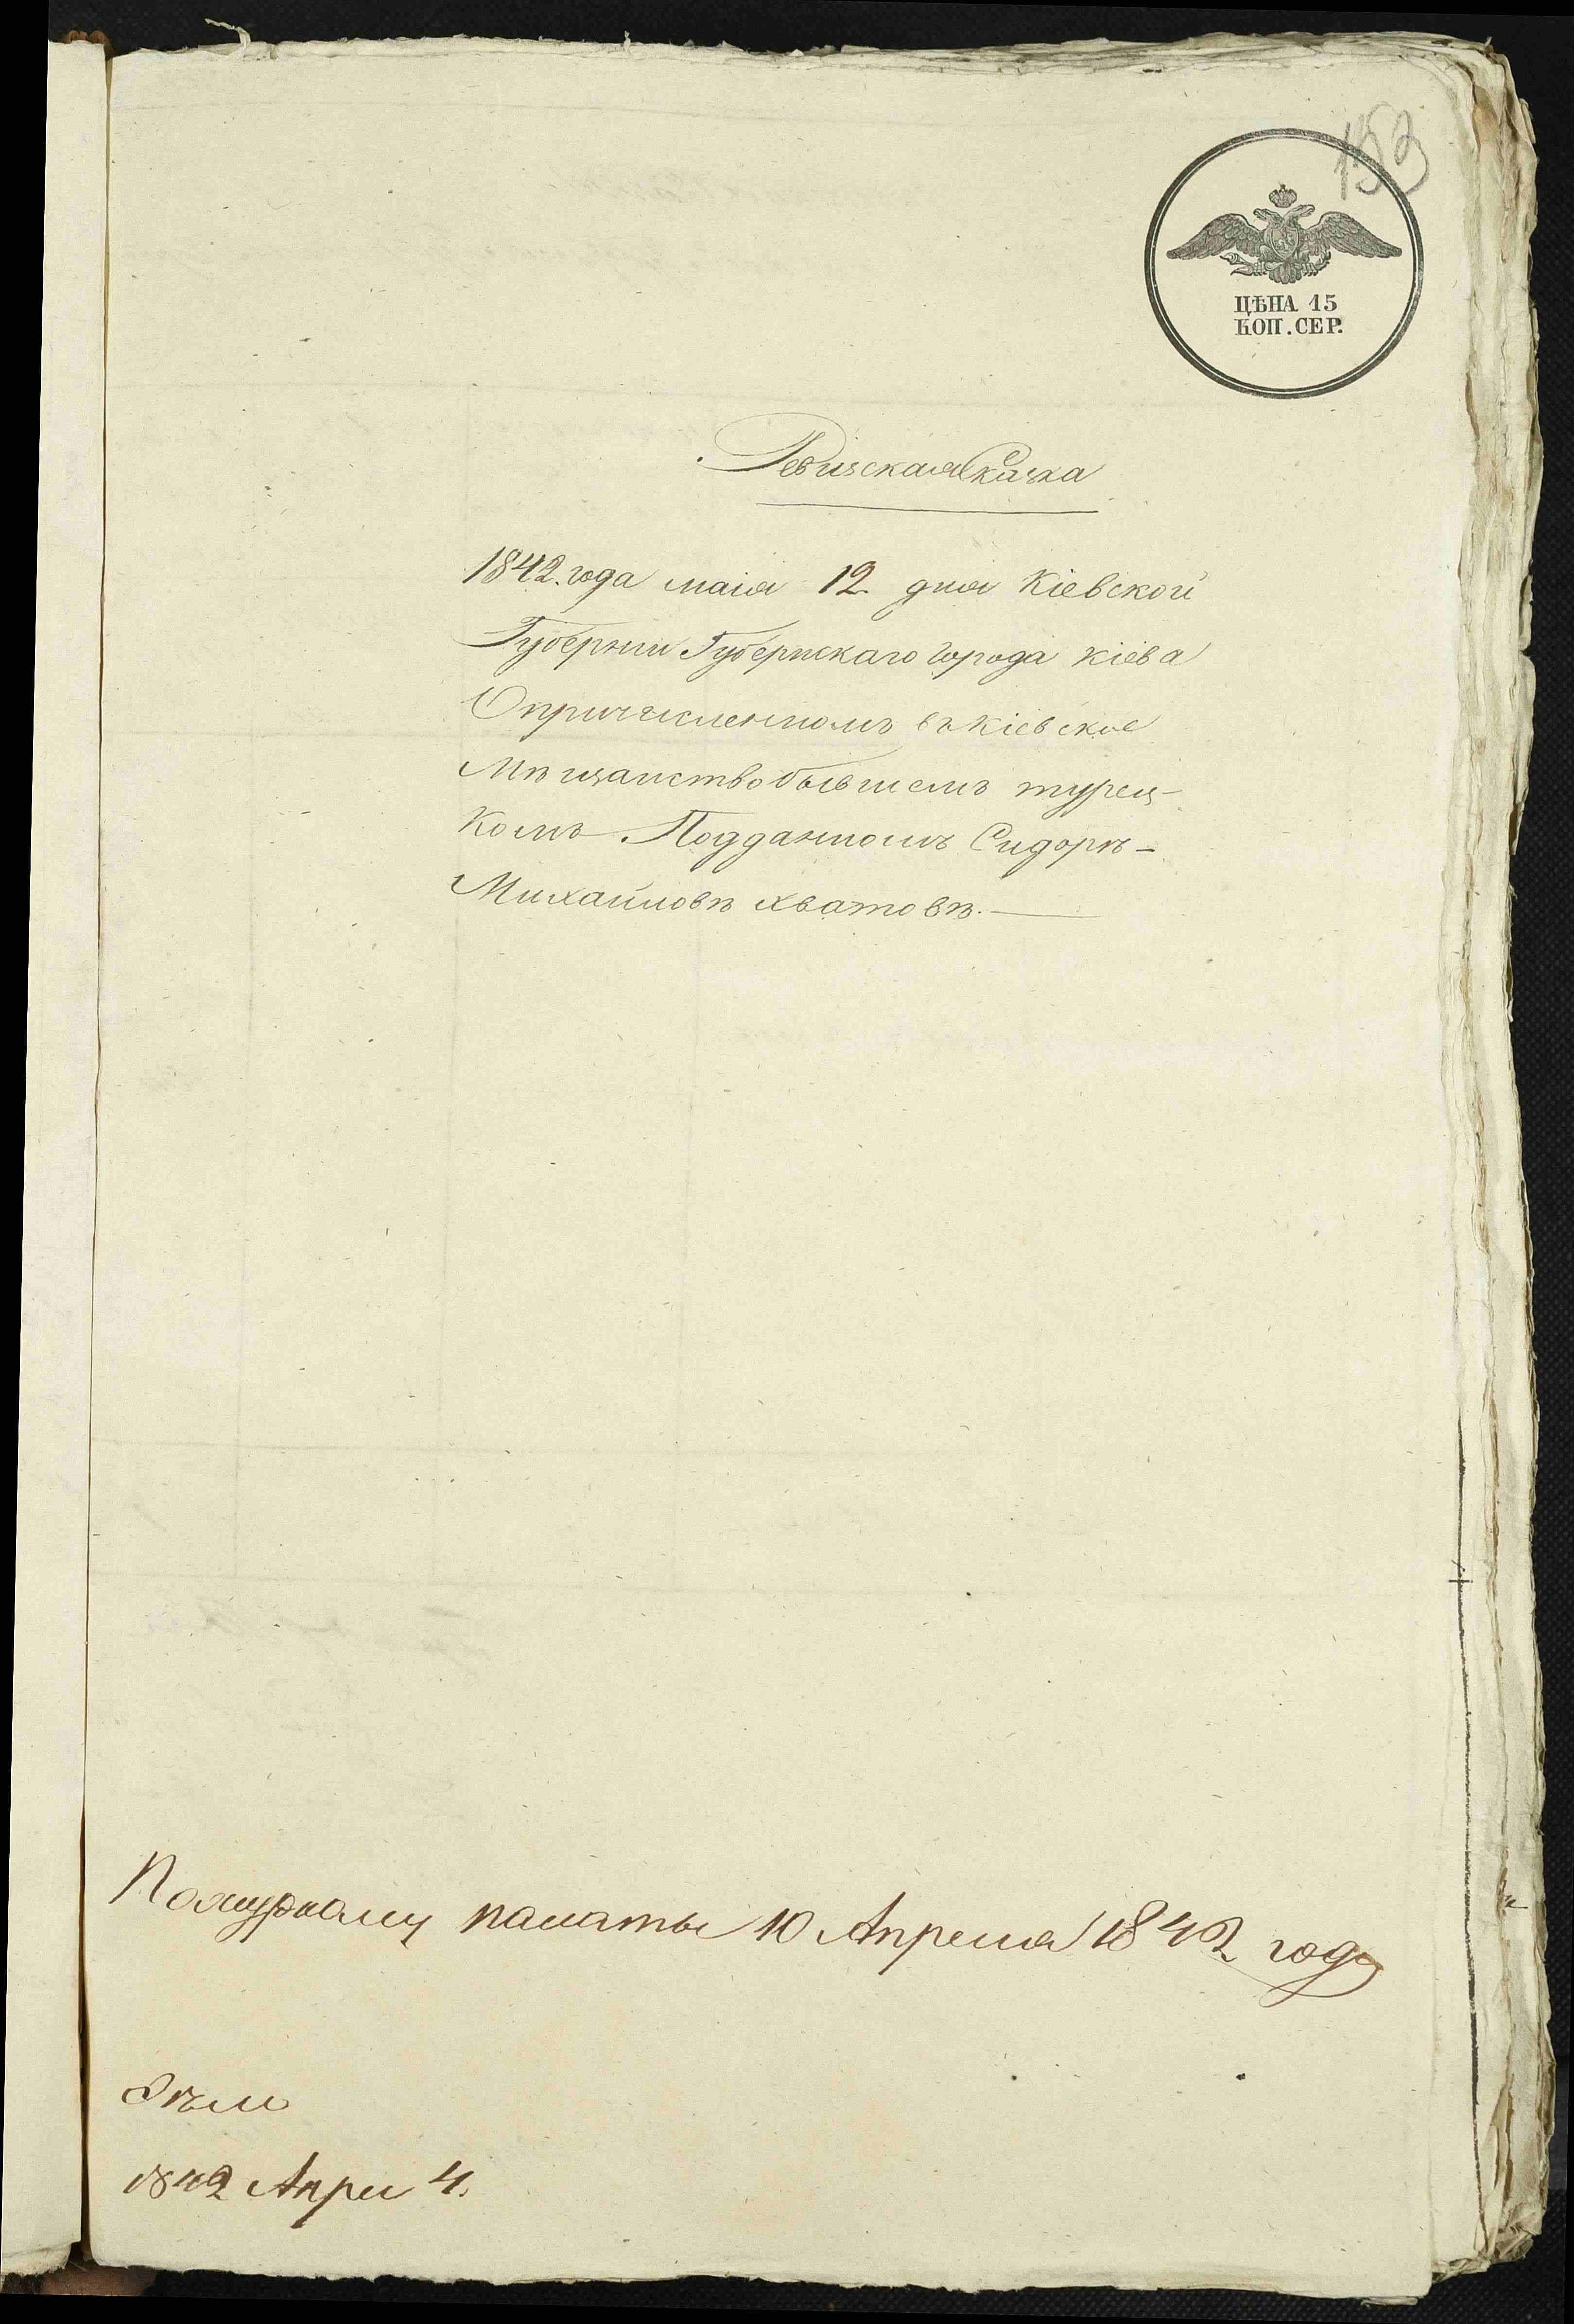 153
ЦѢНА 15
КОП. СЕР.
Ревизская Сказка
1842. года маія 12 дня Кіевской
Губерніи Губернскаго города Кіева
О причисленномъ въ Кіевское
Мѣщанство бывшемъ турец-
комъ Подданномъ Сидорѣ-
Михайловѣ Хватовѣ.
По журналу палаты 10 Апреля 1842 года
Дѣло
1842 Апрел 4.